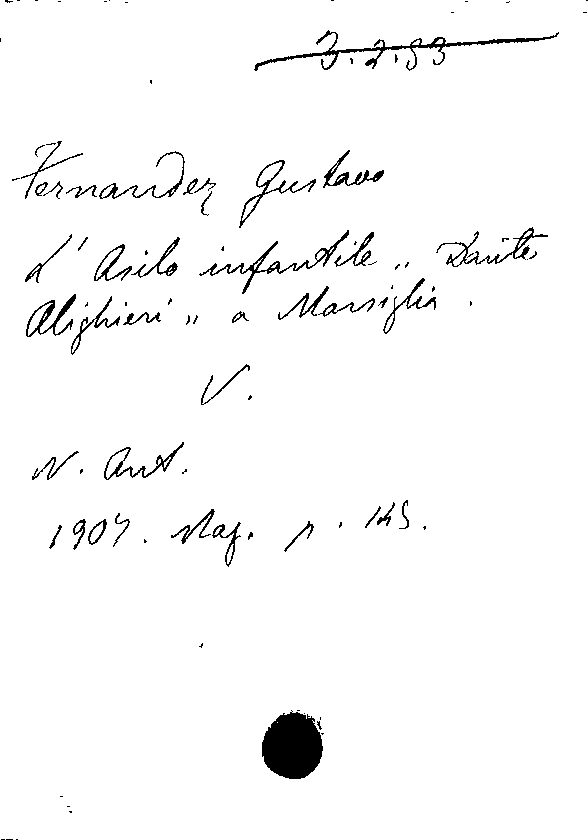 3.2.53
Fernandez Gustavo
L'Asilo infantile „ Dante
Alighieri „ a Marsiglia.
V.
N. Ant.
1907. Mag. p. 145.